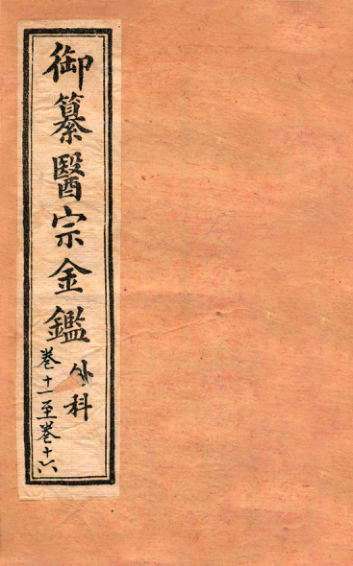 御纂醫宗金鑑
外科
卷十一至卷十六